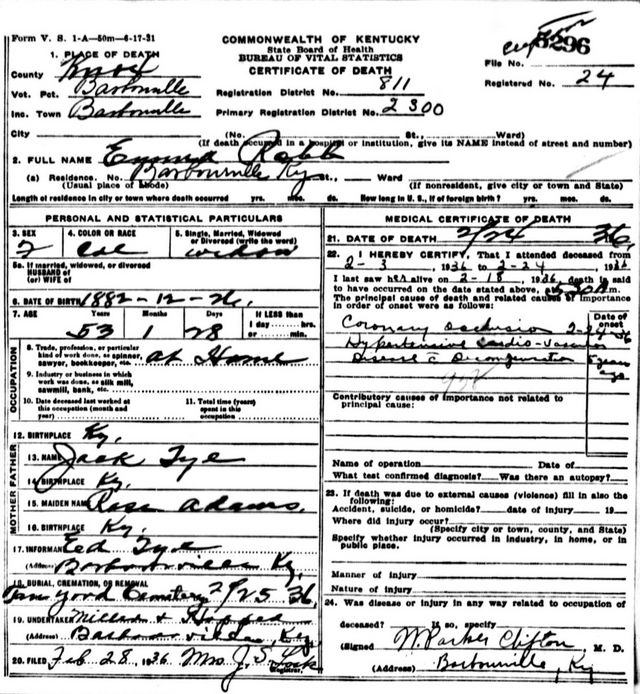 Form V. S. 1-A—50m—6-17-31
COMMONWEALTH OF KENTUCKY
State Board of Health
BUREAU OF VITAL STATISTICS
CERTIFICATE OF DEATH
File No. 8296
Registered No. 24
1. PLACE OF DEATH
County Knox
Vot. Pct. Barbourville
Inc. Town Barbourville
Registration District No. 811
Primary Registration District No. 2300
City (No. St., Ward)
(If death occurred in a hospital or institution, give its NAME instead of street and number)
2. FULL NAME Emma Robb
(a) Residence. No. Barbourville Ky St., Ward
(Usual place of abode) (If nonresident, give city or town and State)
Length of residence in city or town where death occurred yrs. mos. ds. How long in U. S., if of foreign birth? yrs. mos. ds.
PERSONAL AND STATISTICAL PARTICULARS
3. SEX F
4. COLOR OR RACE Col
5. Single, Married, Widowed or Divorced (write the word) widow
5a. If married, widowed, or divorced
HUSBAND of
(or) WIFE of
6. DATE OF BIRTH 1882-12-26
7. AGE Years Months Days If LESS than
53 1 28 1 day hrs.
or min.
OCCUPATION
8. Trade, profession, or particular
kind of work done, as spinner, At Home
sawyer, bookkeeper, etc.
9. Industry or business in which
work was done, as silk mill,
sawmill, bank, etc.
10. Date deceased last worked at
this occupation (month and
year)
11. Total time (years)
spent in this
occupation
12. BIRTHPLACE Ky.
MOTHER FATHER
13. NAME Jack Tye
14. BIRTHPLACE Ky.
15. MAIDEN NAME Rose Adams.
16. BIRTHPLACE Ky.
17. INFORMANT Ed Tye
(Address) Barbourville Ky.
18. BURIAL, CREMATION, OR REMOVAL
Tan Yard Cemetery 2/25 36
19. UNDERTAKER Millard & Hopper
(Address) Barbourville, Ky.
20. FILED Feb 28, 1936 Mrs J. S. Lock
Registrar.
MEDICAL CERTIFICATE OF DEATH
21. DATE OF DEATH 2/24 36
22. I HEREBY CERTIFY, That I attended deceased from
2-3, 1936 to 2-24, 1936
I last saw her alive on 2-18, 1936, death is said
to have occurred on the date stated above, at m.
The principal cause of death and related causes of importance
in order of onset were as follows:
Date of
onset
Coronary occlusion
Hypertensive Cardio-Vascular
Disease c Decompensation 5 years
ago
Contributory causes of importance not related to
principal cause:
Name of operation Date of
What test confirmed diagnosis? Was there an autopsy?
23. If death was due to external causes (violence) fill in also the
following:
Accident, suicide, or homicide? date of injury 19
Where did injury occur?
(Specify city or town, county, and State)
Specify whether injury occurred in industry, in home, or in
public place.
Manner of injury
Nature of injury
24. Was disease or injury in any way related to occupation of
deceased? If so, specify
(Signed W. Parker Clifton, M. D.
(Address) Barbourville, Ky